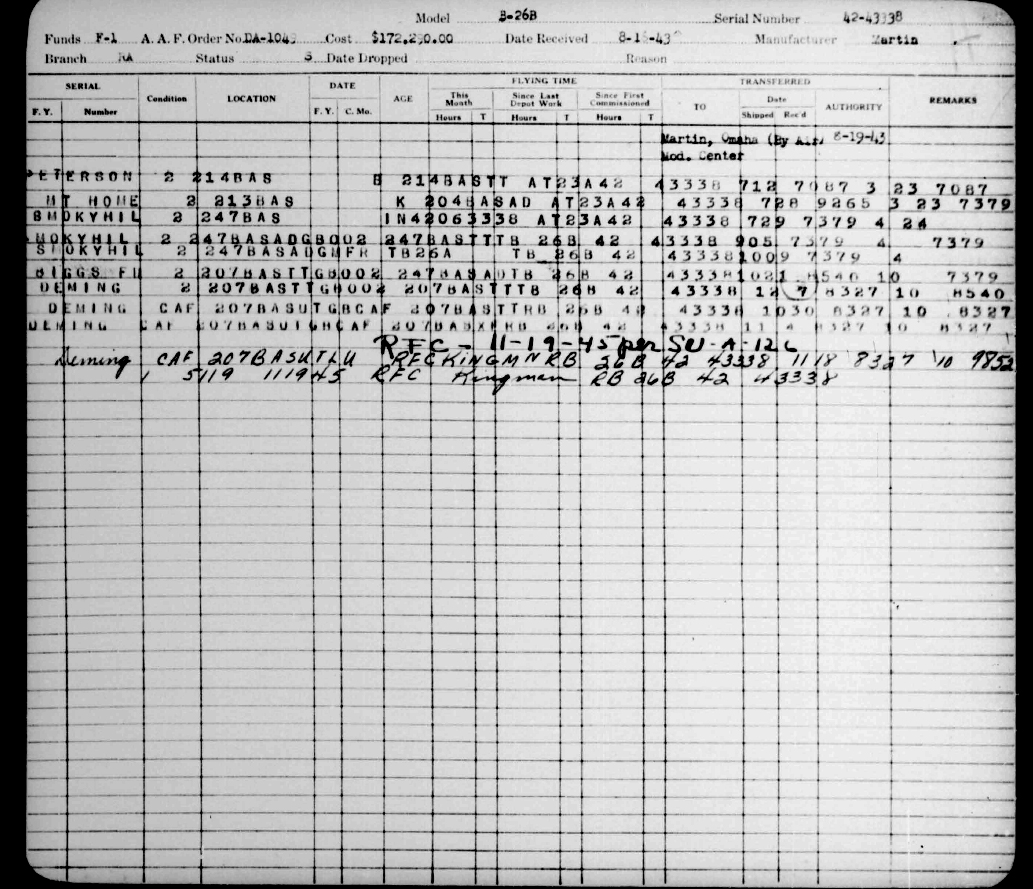 Model B-26B Serial Number 42-43338
Funds F-1 A. A. F. Order No. Cost Date Received Manufacturer Martin
Branch Status S Date Dropped Reason
SERIAL Condition LOCATION DATE AGE FLYING TIME TRANSFERRED REMARKS
F. Y. Number F. Y. C. Mo. This Month Since Last Depot Work Since First Commissioned TO Date AUTHORITY
Hours T Hours T Hours T Shipped Rec'd
Martin, Omaha (By Air) 8-19-43
Mod. Center
PETERSON 2 214BAS B 214BASTT AT23A42 43338 712 7087 3 23 7087
MT HOME 2 213BAS K 204BASAD AT23A42 43338 728 9265 3 23 7379
SMOKYHIL 2 247BAS IN42063338 AT23A42 43338 729 7379 4 24
SMOKYHIL 2 247BASADGB002 247BASTTTB 26B 42 43338 905 7379 4 7379
SMOKYHIL 2 247BASADGMFR TB26A TB 26B 42 43338 1009 7379 4
BIGGS FD 2 207BASTTGB002 247BASADTB 26B 42 43338 1021 8540 10 7379
DEMING 2 207BASTTGB002 207BASTTTB 26B 42 43338 8327 10 8540
DEMING CAF 207BASUTGBCAF 207BASTTRB 26B 42 43338 1030 8327 10 8327
DEMING CAF 207BASUTGBCAF RB 26B 42 43338 11 4 8327 10 8327
RFC - 11-19-45 per SU-A-126
Deming CAF 207BASUTLU RFC KINGMN RB 26B 42 43338 1118 8327 10 9852
1 5119 111945 RFC Kingman RB 26B 42 43338